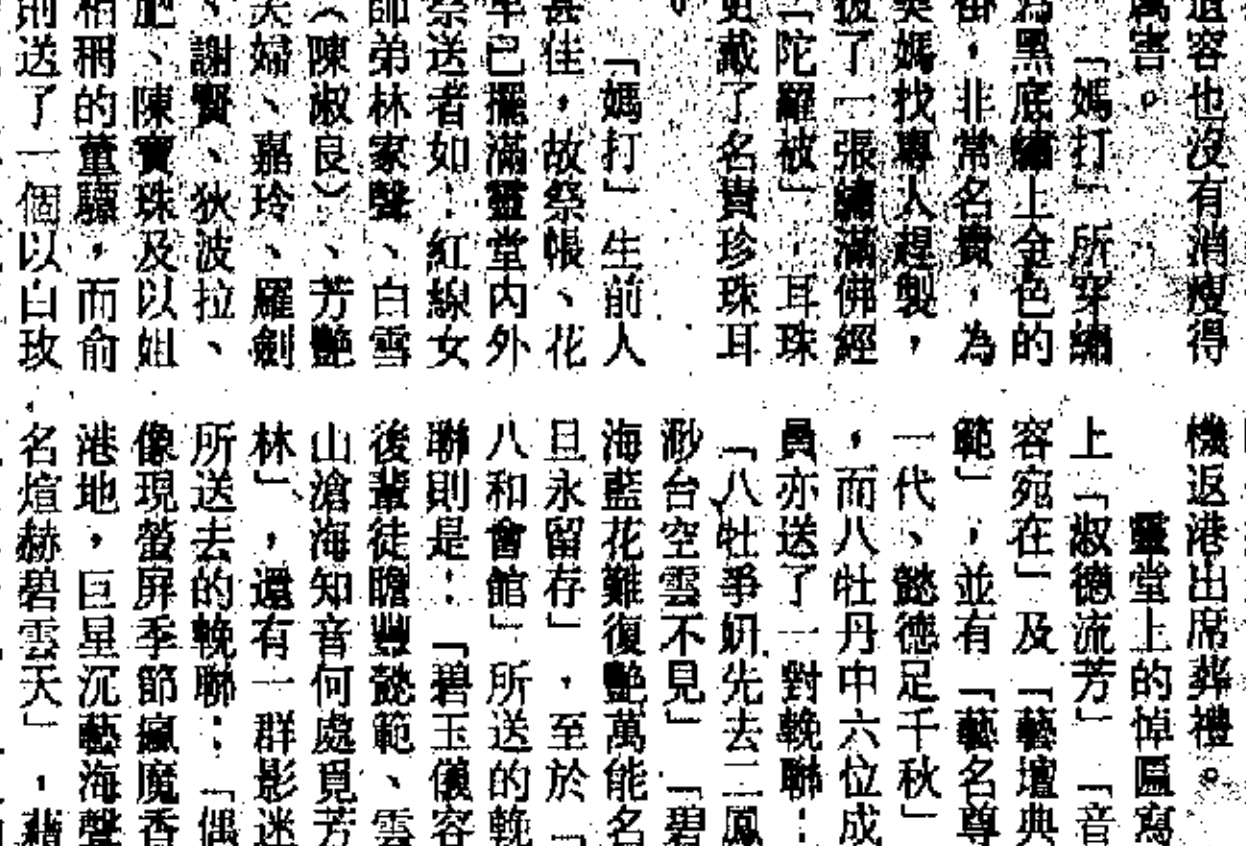 遺容也沒有消瘦得
厲害。
「媽打」所穿繡
為黑底繡上金色的
卦，非常名貴，為
媽找專人趕製，
披了一張繡滿佛經
「陀羅被」，耳珠
更戴了名貴珍珠耳
。
「媽打」生前人
甚佳，故祭帳、花
車已擺滿靈堂內外
祭送者如：紅線女
師弟林家聲、白雪
（陳淑良）、芳艷
夫婦、嘉玲、羅劍
、謝賢、狄波拉、
肥、陳寶珠及以姐
相稱的董驃，而俞
則送了一個以白玫
機返港出席葬禮。
靈堂上的悼匾寫
上「淑德流芳」「音
容宛在」及「藝壇典
範」，並有「藝名尊
一代、懿德足千秋」
，而八牡丹中六位成
員亦送了一對輓聯：
「八牡爭妍先去二鳳
渺台空雲不見」「碧
海藍花難復艷萬能名
且永留存」，至於「
八和會館」所送的輓
聯則是：「碧玉儀容
後輩徒瞻豐懿範、雲
山滄海知音何處覓芳
林」，還有一群影迷
所送去的輓聯：「偶
像現螢屏季節瘋魔香
港地，巨星沉藝海聲
名煊赫碧雲天」，